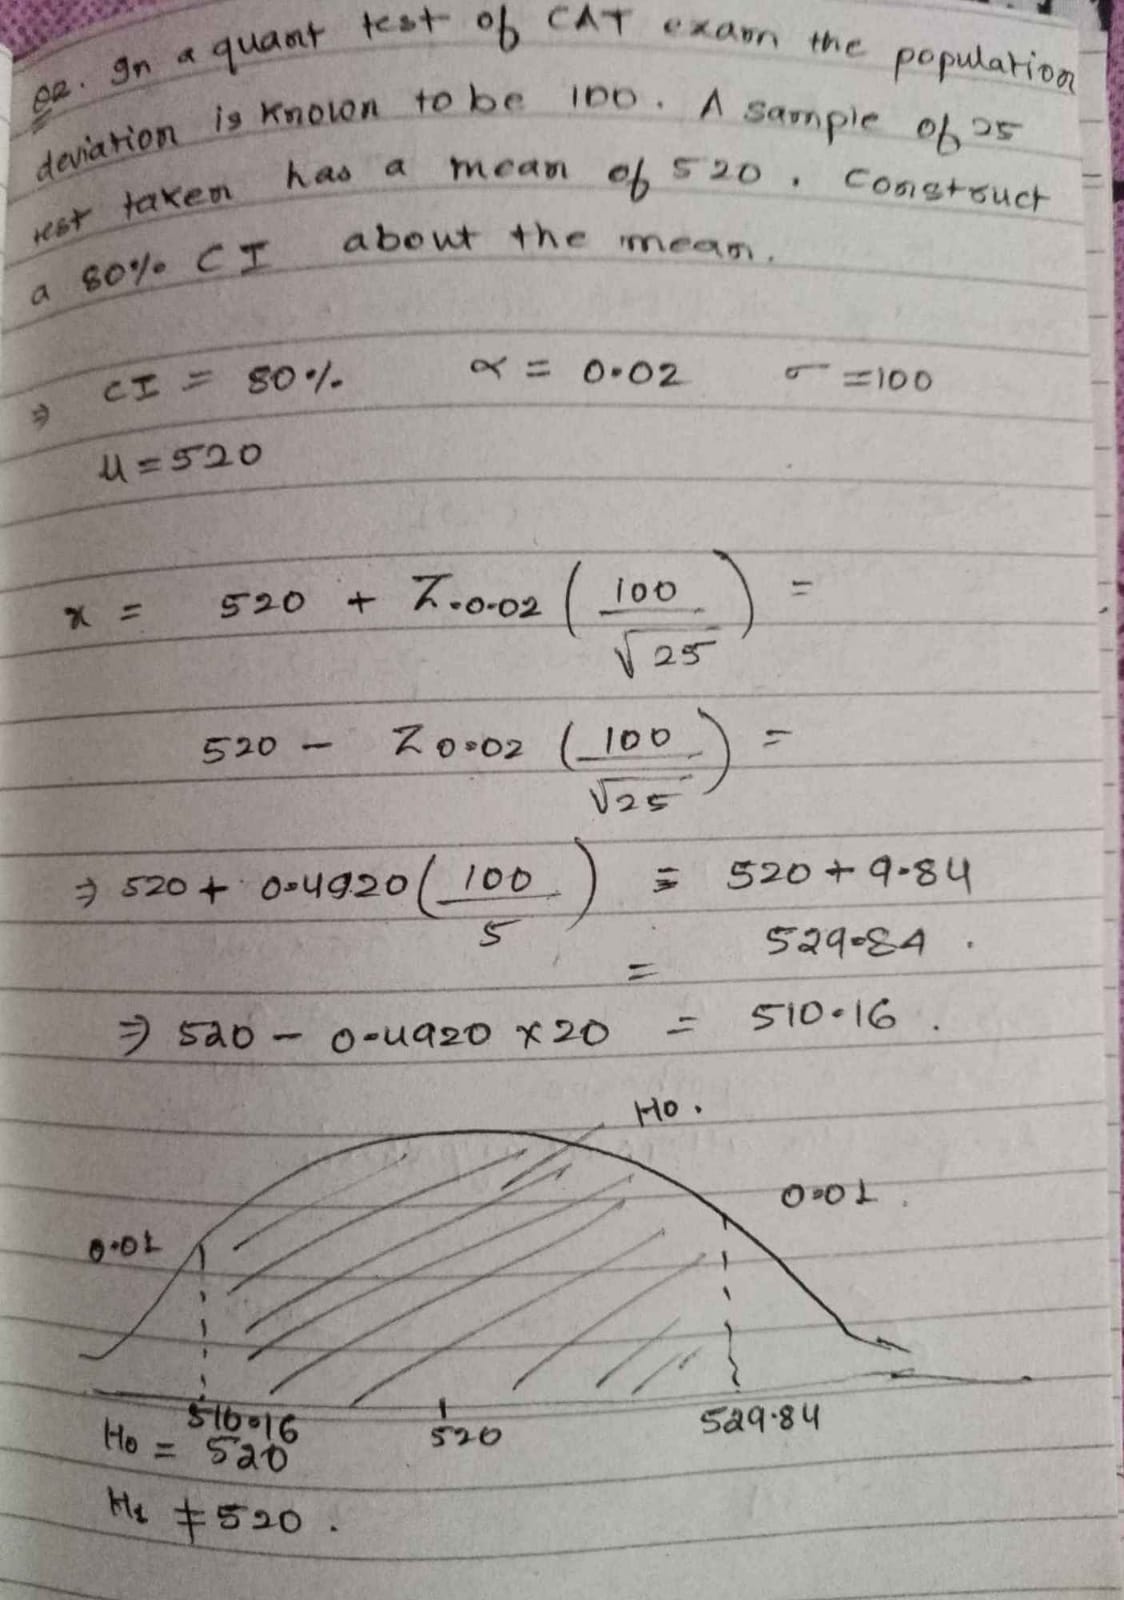 Q2. In a quant test of CAT exam the population
deviation is known to be 100. A sample of 25
test taken has a mean of 520. Construct
a 80% CI about the mean.
⇒ CI = 80% α = 0.02 σ = 100
μ = 520
x = 520 + Z.0.02 (100/√25) =
520 - Z 0.02 (100/√25) =
⇒ 520 + 0.4920 (100/5) = 520 + 9.84
= 529.84 .
⇒ 520 - 0.4920 × 20 = 510.16 .
H0 .
0.01 0.01 .
510.16 520 529.84
H0 = 520
H1 ≠ 520 .